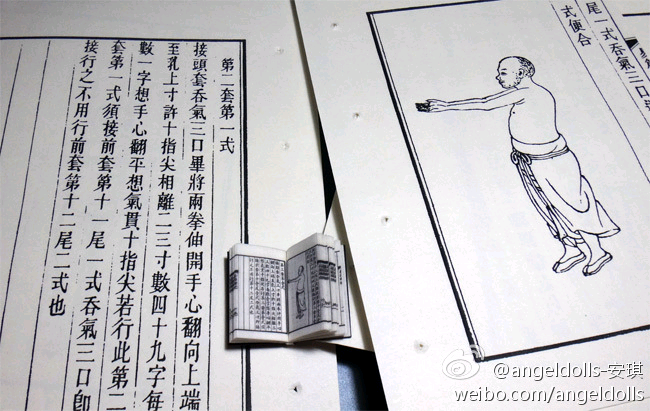 第二套第一式
接頭套吞氣三口畢將兩拳伸開手心翻向上端
至乳上寸許十指尖相離二三寸數四十九字每
數一字想手心翻平想氣貫十指尖若行此第二
套第一式須接前套第十一尾一式吞氣三口即
接行之不用行前套第十二尾二式也
尾一式吞氣三口
式使合
@angeldolls-安琪
weibo.com/angeldolls